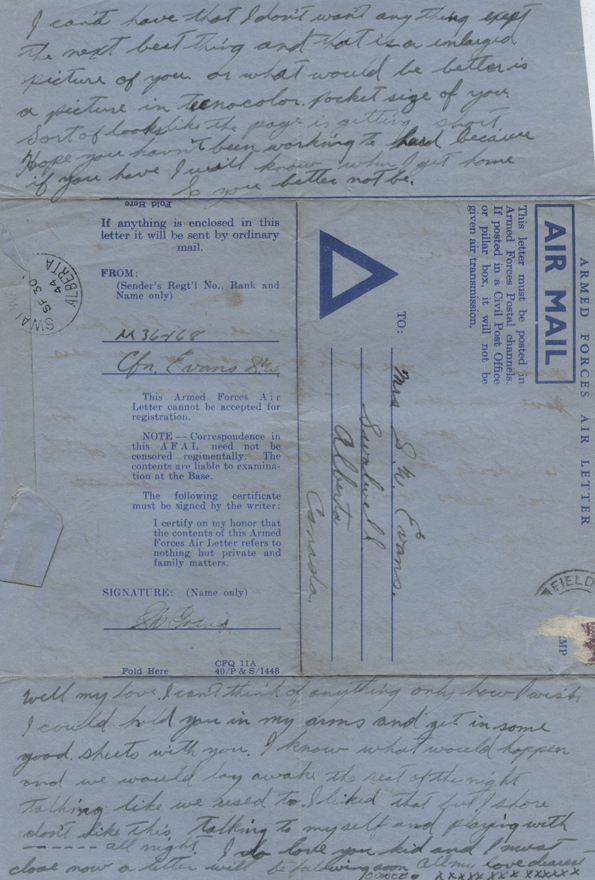 I can't have that I don't want anything exept
the next best thing and that is a enlarged
picture of you or what would be better is
a picture in tecnocolor. pocket size of you
Sort of looks like the page is getting short
Hope you havn't been working to hard because
if you have I will know when I get home
So you better not be.
Fold Here
If anything is enclosed in this
letter it will be sent by ordinary
mail.
FROM:
(Sender's Reg't'l No., Rank and
Name only)
M 36468
Cfn. Evans S.W.
This Armed Forces Air
Letter cannot be accepted for
registration.
NOTE — Correspondence in
this A F A L need not be
censored regimentally. The
contents are liable to examina-
tion at the Base.
The following certificate
must be signed by the writer:
I certify on my honor that
the contents of this Armed
Forces Air Letter refers to
nothing but private and
family matters.
SIGNATURE: (Name only)
SW Evans
Fold Here
CFQ 11A
40/P & S/1448
SP 30
44
ALBERTA
ARMED FORCES AIR LETTER
AIR MAIL
This letter must be posted in
Armed Forces Postal channels.
If posted in a Civil Post Office
or pillar box, it will not be
given air transmission.
TO:
Mrs S W Evans.
Swalwell
Alberta
Canada.
FIELD
well my love I can't think of anything only how I wish
I could hold you in my arms and get in some
good sheets with you. I know what would happen
and we would lay awake the rest of the night
talking like we used to. I liked that but I shore
don't like this, talking to myself and playing with
------ all night. I do love you kid and I must
close now a letter will be following soon All my love dearest
oooooo xxxxxxx xxx xxxxxx